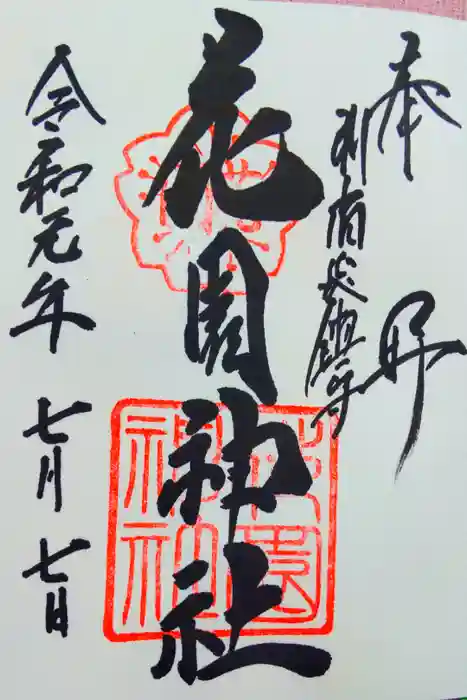 奉拝
新宿総鎮守
花園神社
令和元年七月七日
花園
神社